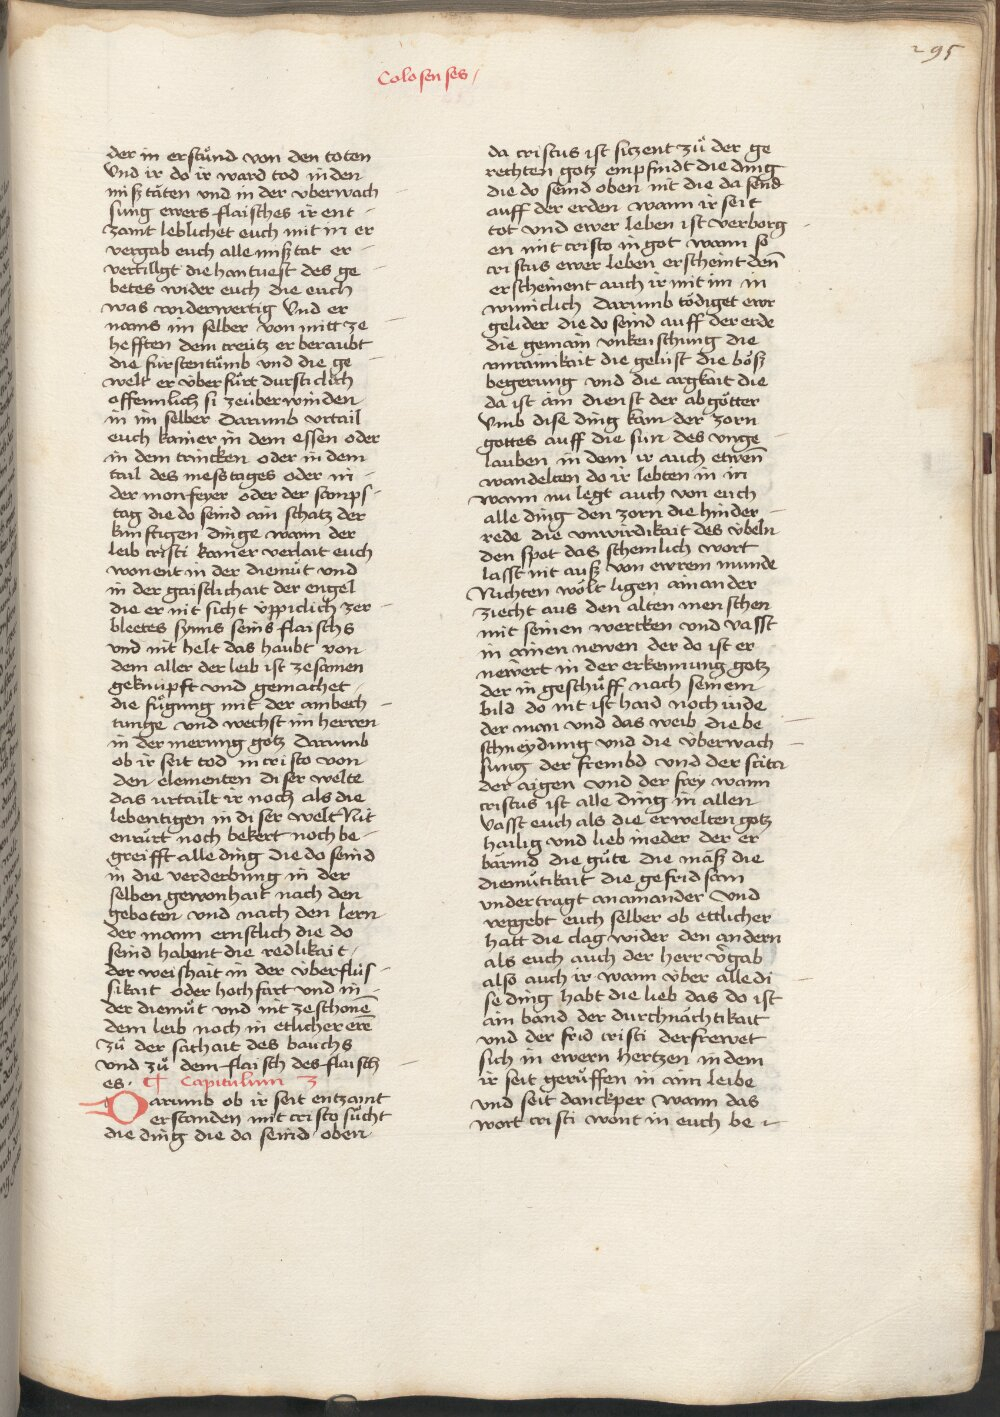 295
Colosenses /
der in erstuͦnd von den toten
Vnd ir do ir ward tod in den
misz taͤten vnd in der vberwach-
sung ewers flaisches ir ent-
zamt leblichet euch mit im er
vergab euch alle misz tat er-
vertillgt die hantuest des ge
betes wider euch die euch
was widerwertig Vnd er
nams im selber von mitt ze
hefften dem creutz er beraubt
die furstentuͤmb vnd die ge
welt er vͤberfuͦrt dursticlich
offennlich si zeuͤberwinden
in im selber Darumb vrtail
euch kainer in dem essen oder
in dem trincken oder in dem
tail des messtages oder in-
der mon feyer oder der samps-
tag die do seind ain schatz der
kunftigen dinge wann der
leib cristi kainer verlait euch
wonent in der diemuͤt vnd
in der gaistlichait der engel
die er nit sicht vͤppiclich zer-
bleetes synns seins flaischs
vnd nit helt das haubt von
dem aller der leib ist zesamen
geknupft vnd gemachet
die fuͤgung mit der ambech-
tunge vnd wechst im herren
in der merung gotz Darumb
ob ir seit tod in cristo von
den elementen diser welte
das urtailt ir noch als die
lebentigen in diser welt Nit
enruͤrt noch bekert noch be-
greifft alle ding die do seind
in die verderbung in der
selben gewonhait nach den
geboten vnd nach den lern
der mann ernstlich die do
seind habent die redlikait
der weishait in der vberfluͤs-
sikait oder hochfart vnd in-
der diemuͤt vnd nit zeschonen̄
dem leib noch in etlicher ere
zuͦ der sathait des bauchs
vnd zuͦ dem flaisch des flaisch
es. ¶ Capitulum 3
Darumb ob ir seit entzamt
erstanden mit cristo suͦcht
die ding die da seind oben
da cristus ist siczent zuͦ der ge
rechten gotz empfindt die ding
die do seind oben nit die da send
auff der erden wann ir seit
tot vnd ewer leben ist verborg-
en mit cristo in got wann so
cristus ewer leben erscheint den̄
erscheinent auch ir mit im in
wuniclich Darumb toͤdiget ewr
gelider die do seind auff der erde
die gemain vnkeuschung die
vnrainikait die gelust die boͤsz
begerung vnd die argkait die
da ist ain dienst der abgoͤtter
Vmb dise ding kam der zorn
gottes auff die sun des vnge-
lauben in dem ir auch etwen̄
wandelten do ir lebten in in
wann nu legt auch von euch
alle ding den zorn die hinder-
rede die vnwirdikait des vͤbeln
den spot das schemlich wort
lasst nit ausz von ewrem munde
Nichten woͤlt ligen ainander
ziecht aus den alten menschen
mit seinen wercken vnd vasst
in ainen newen der do ist er
newert in der erkennung gotz
der in geschuͦff nach seinem
bild do nit ist haid noch iude
der man vnd das weib die be-
schneydung vnd die vberwach-
sung der frembd vnd der scita
der aigen vnd der frey wann
cristus ist alle ding in allen
Vasst euch als die erwelten gotz
hailig vnd lieb in eder der er
baͤrmd die guͤte die maͤsz die
diemuͤtikait die gefridsam
vndertragt anainander Vnd
vergebt euch selber ob ettlicher
hatt die clag wider den andern
als euch auch der herr v̓gab
also auch ir wann vͤber alle di-
se ding habt die lieb das do ist
ain band der durchnaͤchtikait
vnd der frid cristi derfrewet
sich in ewern hertzen in dem
ir seit geruͤffen in aim leibe
vnd seit danckper wann das
wort cristi wont in euch be-